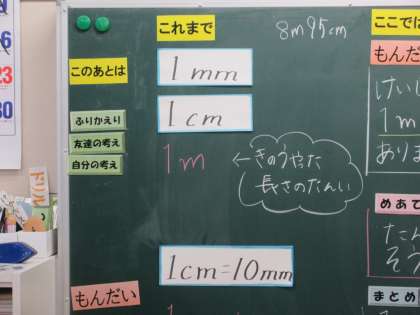 6
23
30
このあとは
ふりかえり
友達の考え
自分の考え
ドリル
もんだい
これまで
8m95cm
1mm
1cm
1m
←きのうやった
長さのたんい
1cm=10mm
ここでは
もんだ
けいし
1m
ありま
めあて
たん
そう
まとめ